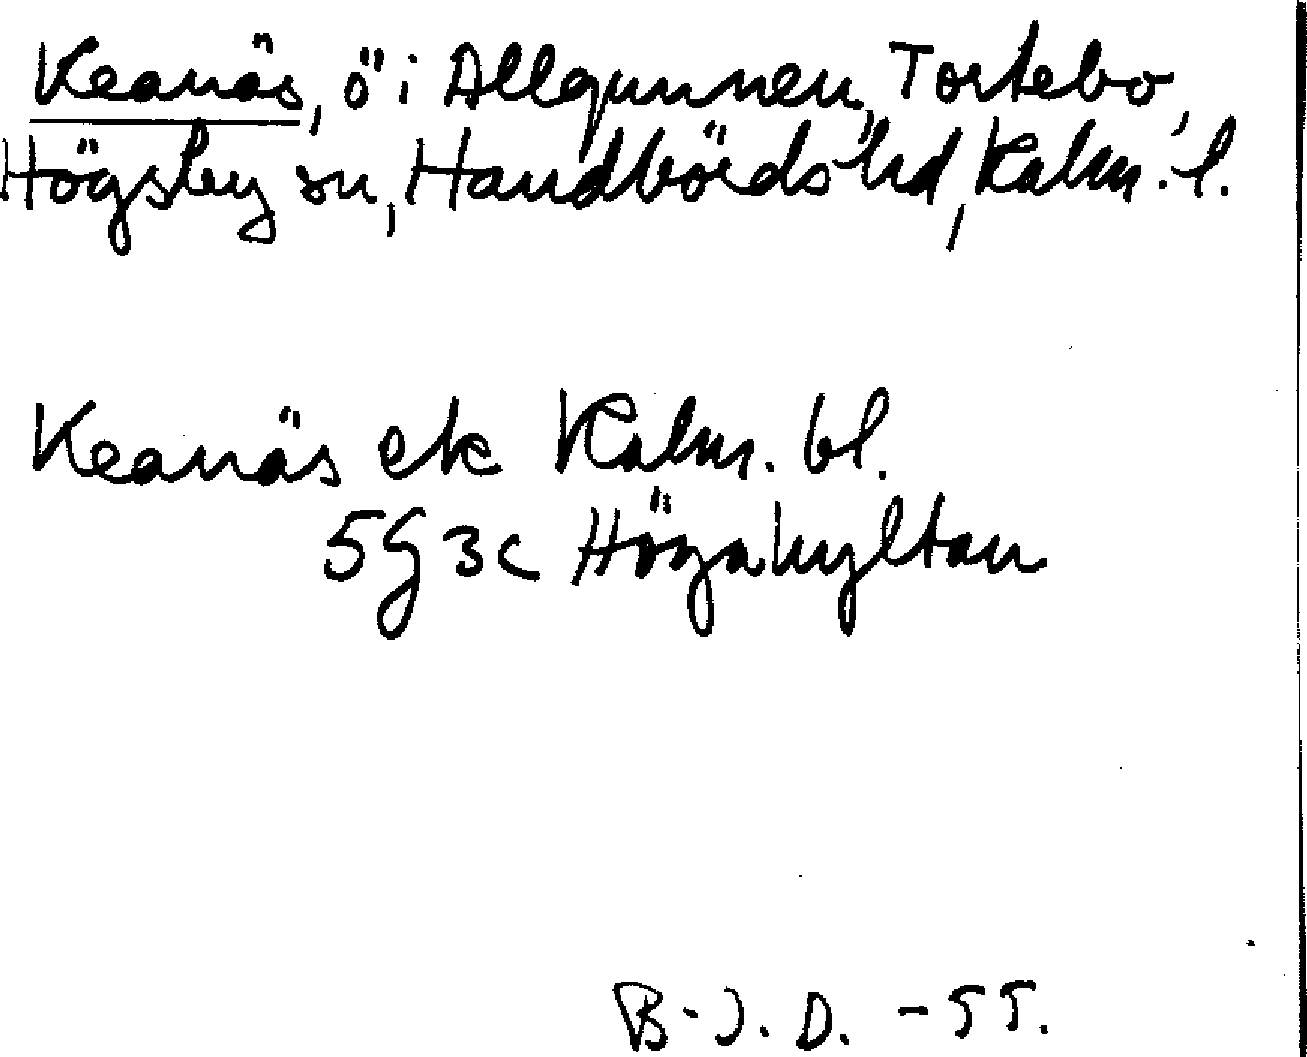 Keanäs, ö i Allgunnen, Tortebo,
Högsby sn, Handbörds hd, Kalm. l.
Keanäs ek Kalm. bl.
5G 3c Högahyltan
B-J. D. -55.